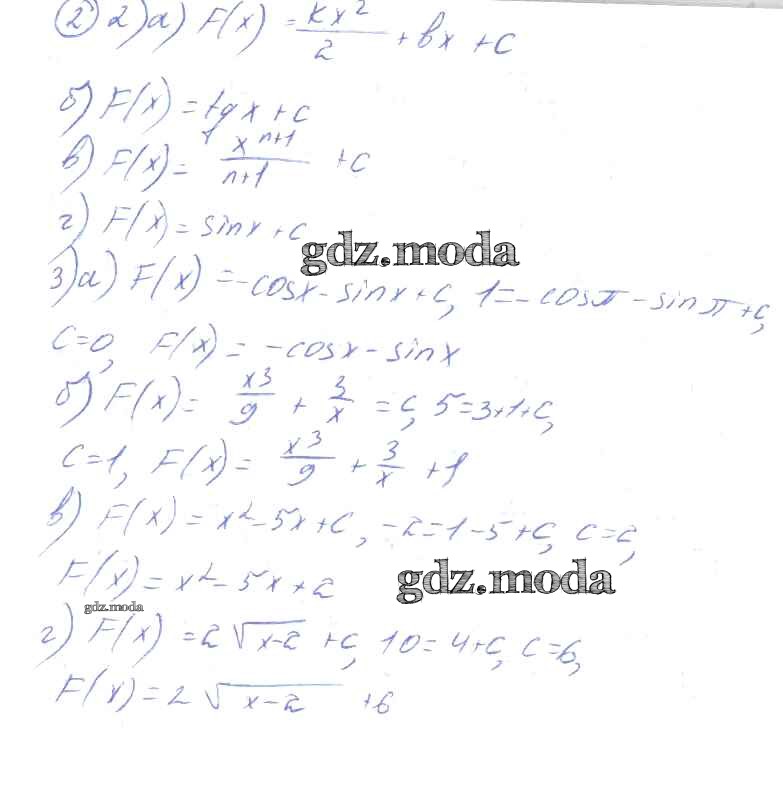 ② 2) а) F(x) = kx²/2 + bx + c
б) F(x) = tgx + c
в) F(x) = xⁿ⁺¹/n+1 + c
г) F(x) = sinx + c
gdz.moda
3) а) F(x) = -cosx - sinx + c, 1 = -cosπ - sinπ + c,
c = 0, F(x) = -cosx - sinx
б) F(x) = x³/9 + 3/x = c, 5 = 3 + 1 + c,
c = 1, F(x) = x³/9 + 3/x + 1
в) F(x) = x² - 5x + c, -2 = 1 - 5 + c, c = 2,
F(x) = x² - 5x + 2
gdz.moda
gdz.moda
г) F(x) = 2√x-2 + c, 10 = 4 + c, c = 6,
F(x) = 2√x-2 + 6